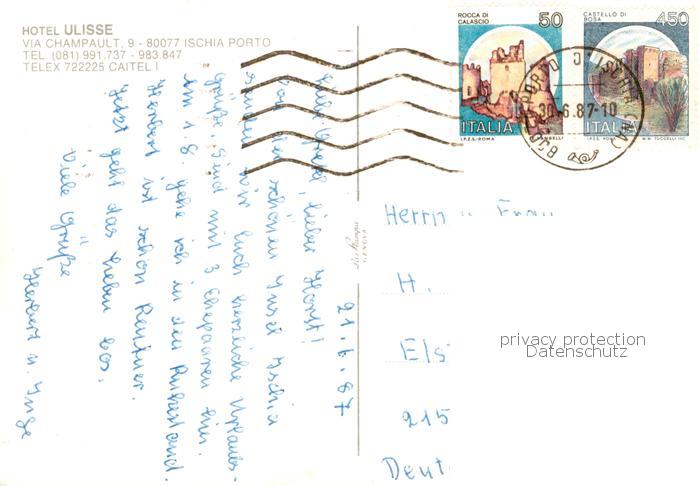 HOTEL ULISSE
VIA CHAMPAULT, 9 - 80077 ISCHIA PORTO
TEL. (081) 991.737 - 983.847
TELEX 722225 CAITEL I
ROCCA DI
CALASCIO
50
ITALIA
I.P.Z.S.-ROMA
CASTELLO DI
BOSA
450
ITALIA
I.P.Z.S. ROMA
30.6.87-10
21.6.87
Liebe Gretel, lieber Horst!
Von der schönen Insel Ischia
senden wir Euch herzliche Urlaubs-
grüße. Sind mit 3 Ehepaaren hier.
Am 1.8. gehe ich in den Ruhestand.
Herbert ist schon Rentner.
Jetzt geht das Leben los.
Viele Grüße
Herbert u. Inge
GENOVA
Herrn u. Frau
H.
Els
215
Deut
privacy protection
Datenschutz